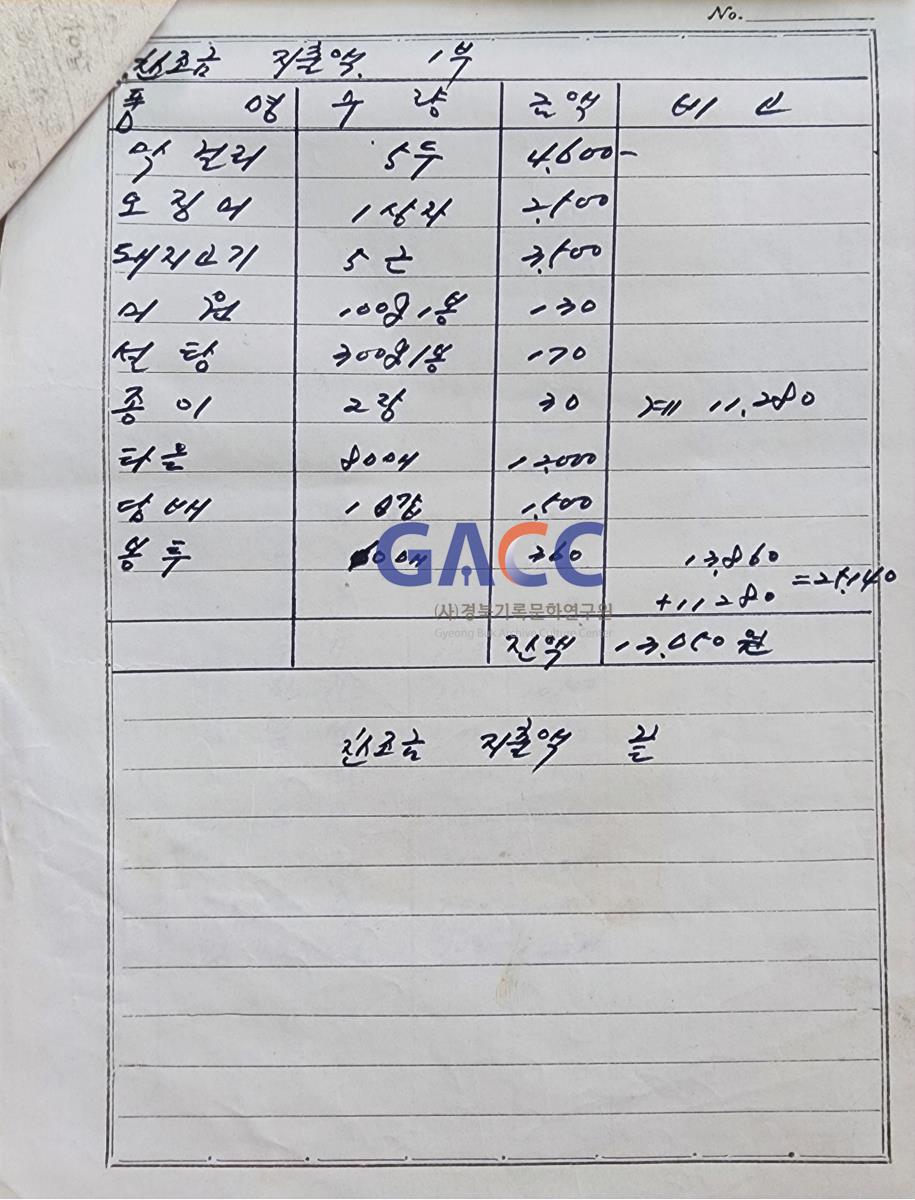 No.
찬조금 지출액 1부
품 명 수 량 금액 비 고
막걸리 5두 4,600-
오징어 1상자 2,500
돼지고기 5근 3,500
미 원 100g 1봉 130
설 탕 300g 1봉 170
종 이 2장 30 계 11,280
타올 80매 12,000
담배 10갑 1,500
봉투 60매 360 13,860
+11,280 =25,140
잔액 13,050원
찬조금 지출액 끝
GACC
(사)경북기록문화연구원
Gyeong Buk Archive Culture Center